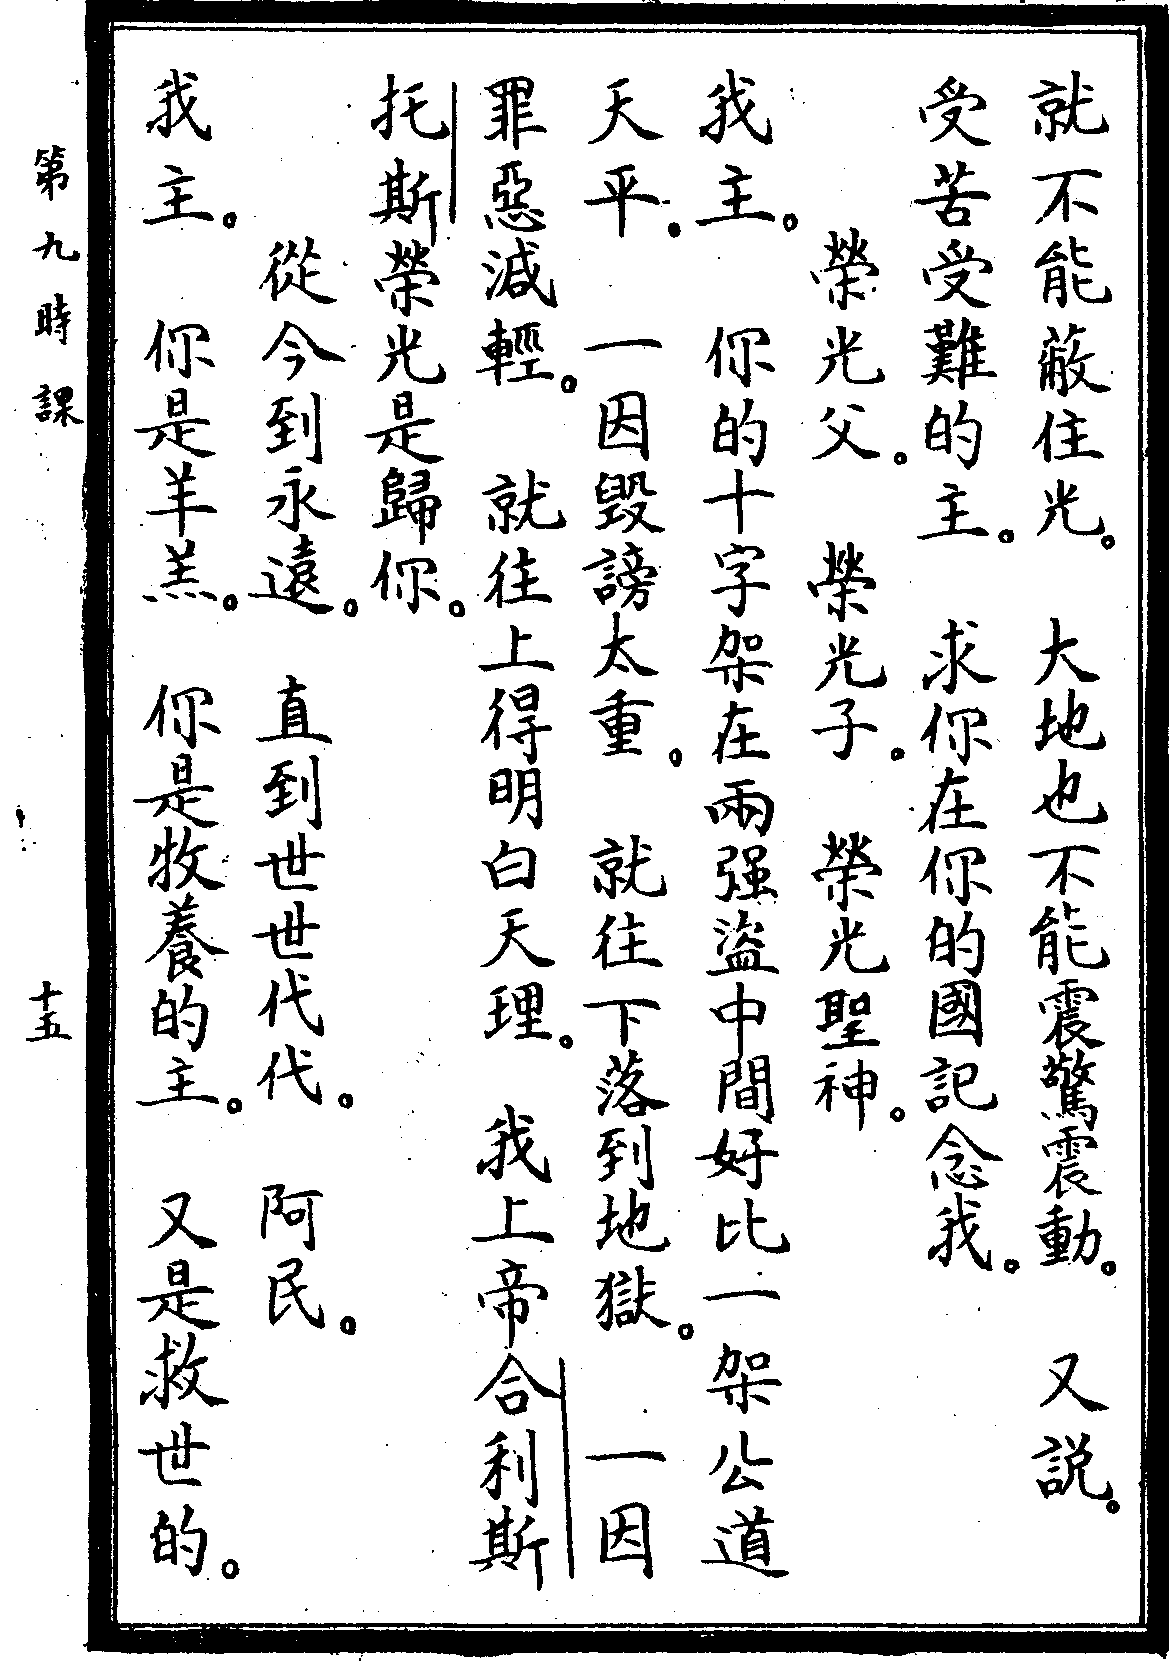 就不能蔽住光。　大地也不能震驚震動。　又説。
受苦受難的主。　求你在你的國記念我。
榮光父。　榮光子。　榮光聖神。
我主。　你的十字架在兩强盜中間好比一架公道
天平。　一因毀謗太重。　就往下落到地獄。　一因
罪惡減輕。　就往上得明白天理。　我上帝合利斯
托斯榮光是歸你。
從今到永遠。　直到世世代代。　阿民。
我主。　你是羊羔。　你是牧養的主。　又是救世的。
第九時課　十五